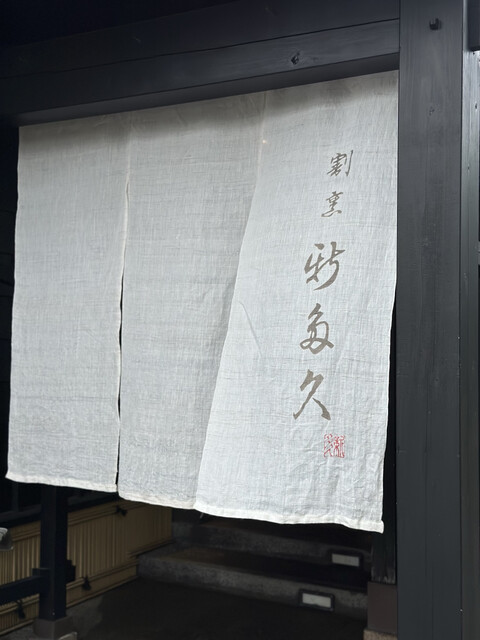 割烹
新多久